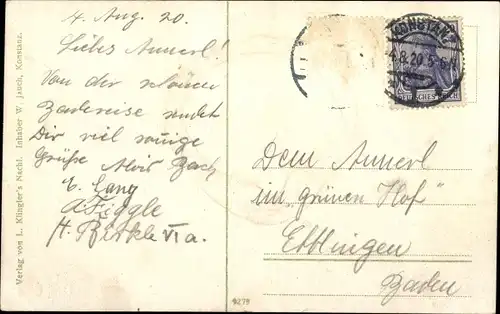 4. Aug. 20.
Liebes Annerl!
Von der schönen
Badereise sendet
Dir viel sonnige
Grüße Alois Bach
E. Lang
A Figgle
H. Birkle VIa.
Verlag von L. Klingler's Nachf. Inhaber W. Jauch, Konstanz.
KONSTANZ
4.8.20 5-6 N
DEUTSCHES REICH
Dem Annerl
im „grünen Hof“
Ettlingen
Baden
9278